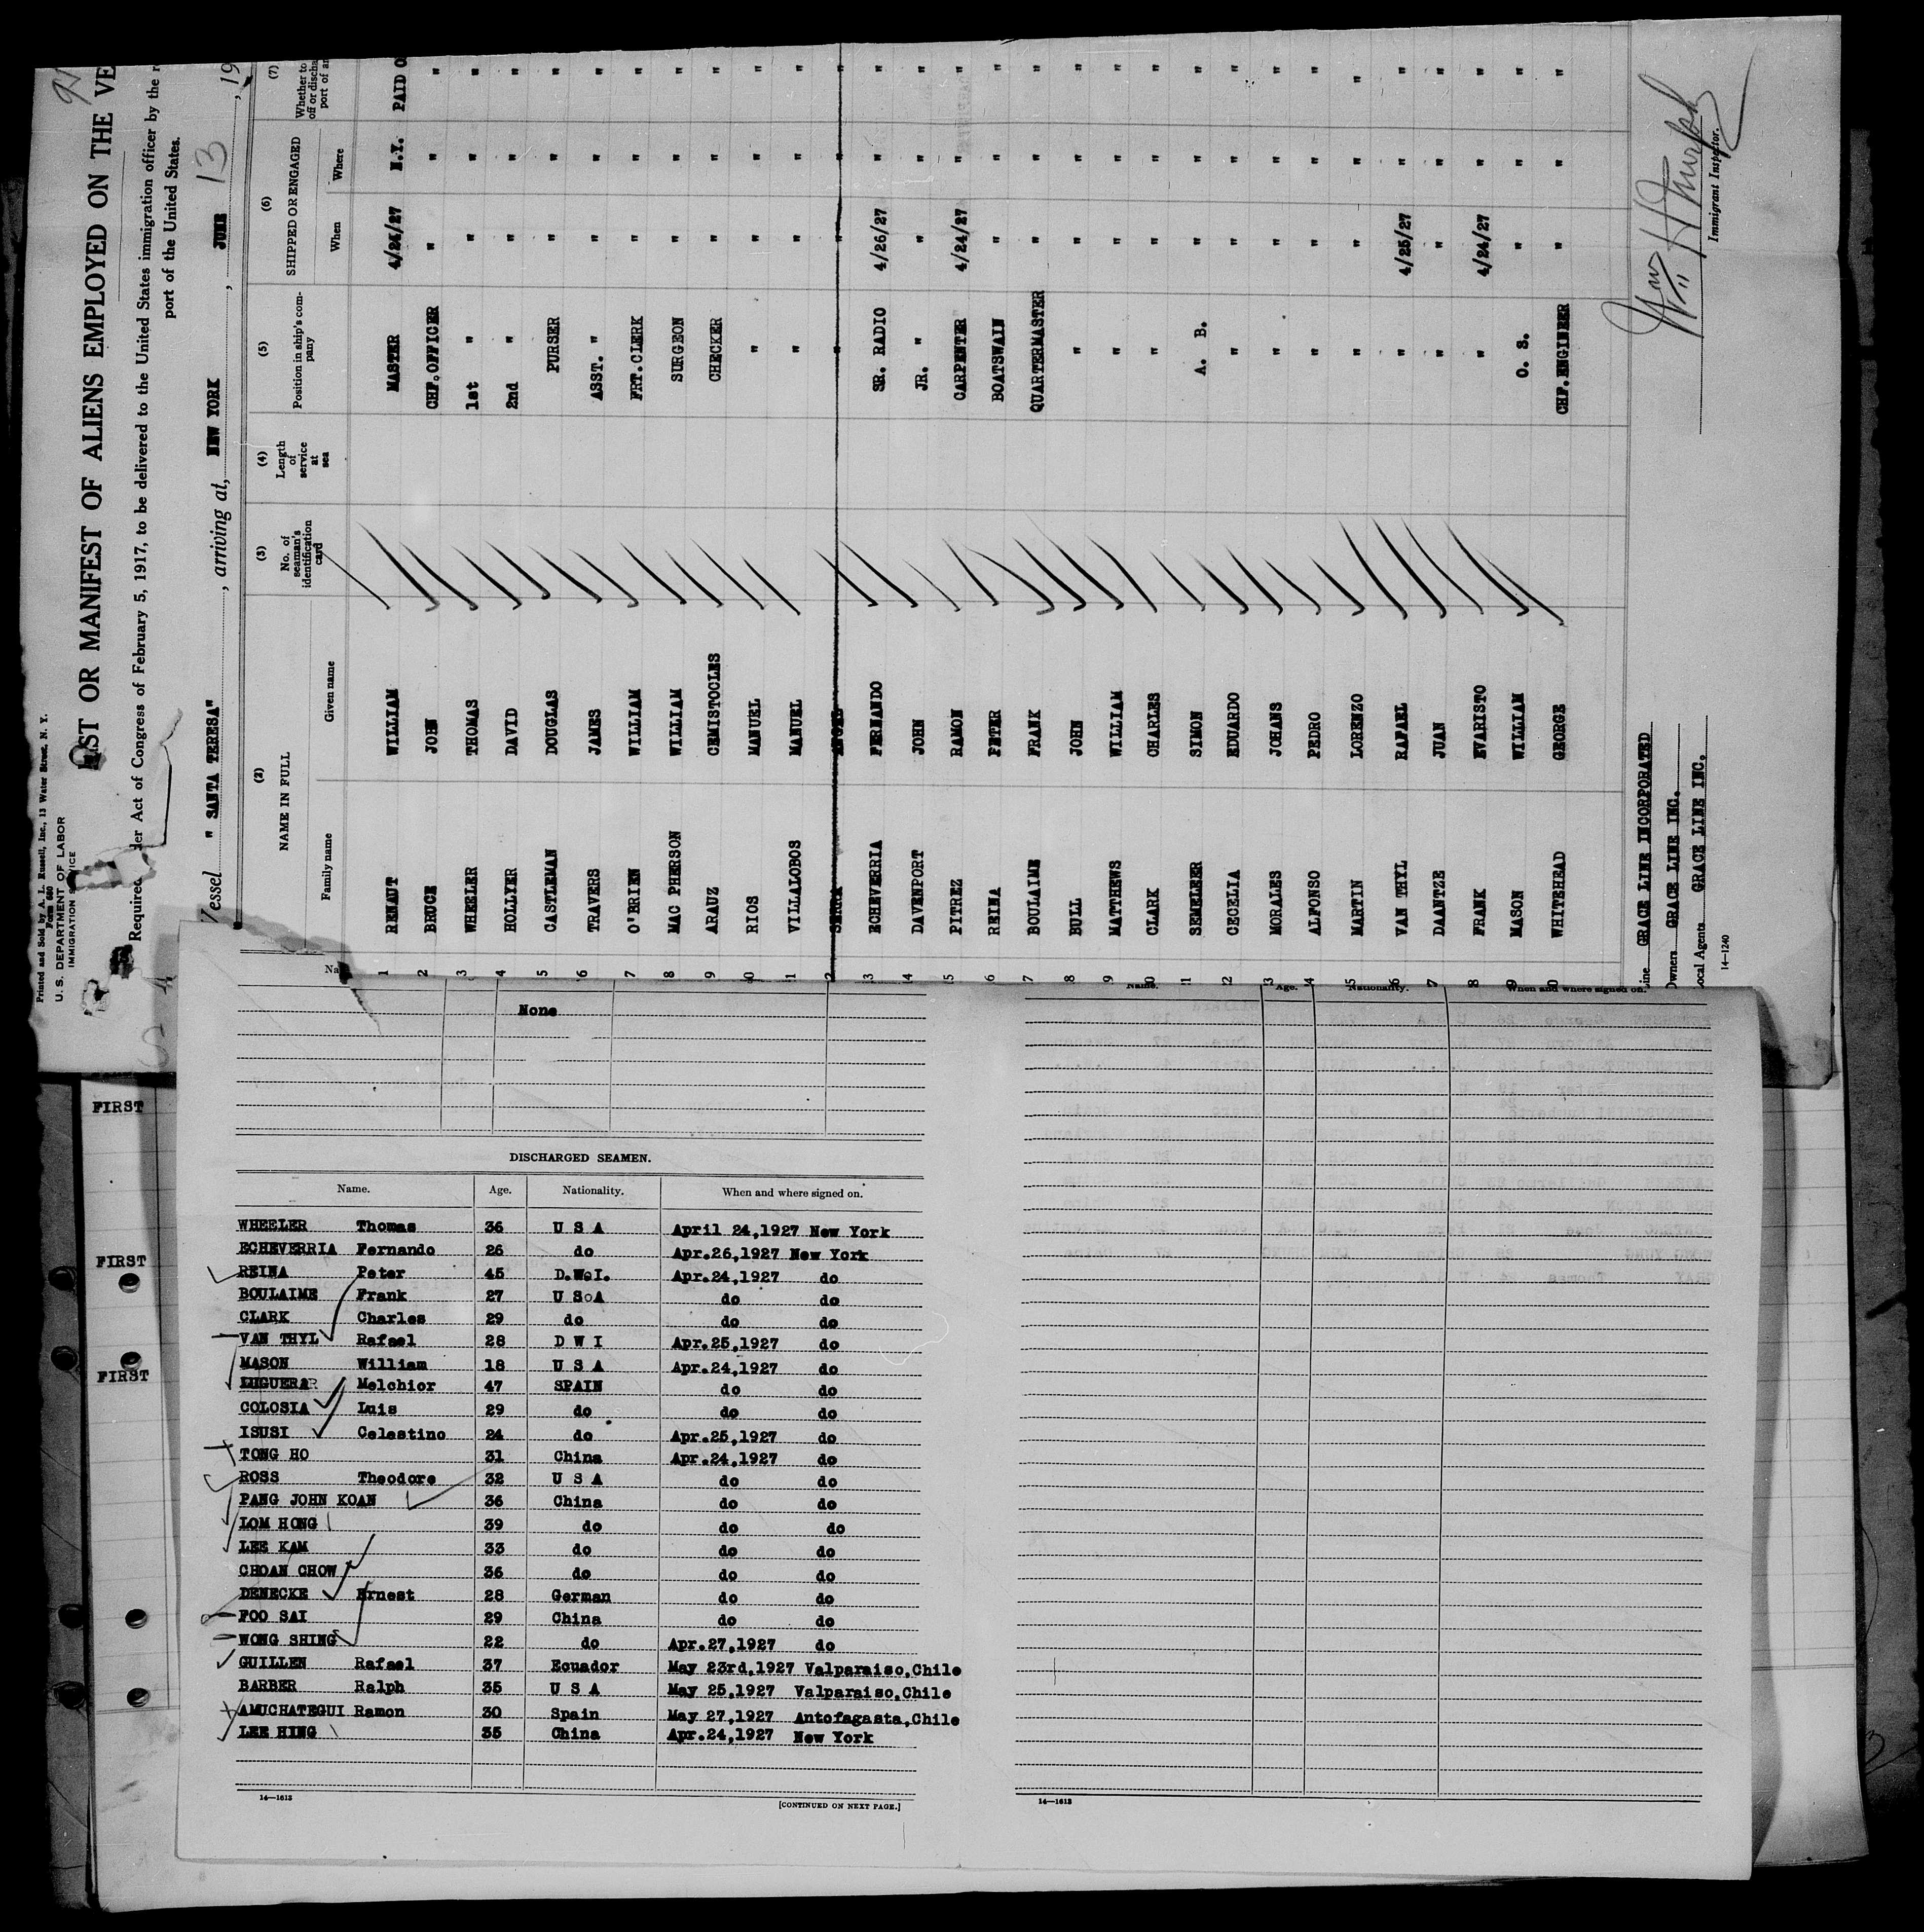 Printed and Sold by A. L. Russell, Inc., 13 Water Street, N. Y.
Form 680
U. S. DEPARTMENT OF LABOR
IMMIGRATION SERVICE
ST OR MANIFEST OF ALIENS EMPLOYED ON THE VE
Required der Act of Congress of February 5, 1917, to be delivered to the United States immigration officer by the r
port of the United States.
Vessel "SANTA TERESA", arriving at, NEW YORK, JUNE 13, 19
(2) (3) (4) (5) (6) (7)
NAME IN FULL No. of seaman's identification card Length of service at sea Position in ship's company SHIPPED OR ENGAGED Whether to off or discha port of ar
Family name Given name When Where
1 RENAUT WILLIAM MASTER 4/24/27 N.Y. PAID O
2 BRUCE JOHN CHF.OFFICER " " "
3 WHEELER THOMAS 1st " " " "
4 HOLLYER DAVID 2nd " " " "
5 CASTLEMAN DOUGLAS PURSER " " "
6 TRAVERS JAMES ASST. " " " "
7 O'BRIEN WILLIAM FRT.CLERK " " "
8 MAC PHERSON WILLIAM SURGEON " " "
9 ARAUZ CEMISTOCLES CHECKER " " "
0 RIOS MANUEL " " " "
1 VILLALOBOS MANUEL " " " "
2 SERRA ANGEL " " " "
3 ECHEVERRIA FERNANDO SR. RADIO 4/26/27 " "
4 DAVENPORT JOHN JR. " " " "
5 PITREZ RAMON CARPENTER 4/24/27 " "
6 REINA PETER BOATSWAIN " " "
7 BOULAIME FRANK QUARTERMASTER " " "
8 BULL JOHN " " " "
9 MATTHEWS WILLIAM " " " "
0 CLARK CHARLES " " " "
1 SEMELEER SIMON A. B. " " "
2 CECELIA EDUARDO " " " "
3 MORALES JOHANS " " " "
4 ALFONSO PEDRO " " " "
5 MARTIN LORENZO " " " "
6 VAN THYL RAFAEL " 4/25/27 " "
7 DAANTZE JUAN " " " "
8 FRANK EVARISTO " 4/24/27 " "
9 MASON WILLIAM O. S. " " "
0 WHITEHEAD GEORGE CHF.ENGINEER " " "
Line GRACE LINE INCORPORATED
Owners GRACE LINE INC.
Local Agents GRACE LINE INC.
14—1240
Wm H Murphy
Immigrant Inspector.
FIRST
FIRST
FIRST
Na
None
Name. Age. Nationality. When and where signed on.
DISCHARGED SEAMEN.
Name. Age. Nationality. When and where signed on.
WHEELER Thomas 36 U S A April 24,1927 New York
ECHEVERRIA Fernando 26 do Apr.26,1927 New York
REINA Peter 45 D.W.I. Apr.24,1927 do
BOULAIME Frank 27 U S A do do
CLARK Charles 29 do do do
VAN THYL Rafael 28 D W I Apr.25,1927 do
MASON William 18 U S A Apr.24,1927 do
Melchior 47 SPAIN do do
COLOSIA Luis 29 do do do
ISUSI Celestino 24 do Apr.25,1927 do
TONG HO 31 China Apr.24,1927 do
ROSS Theodore 32 U S A do do
PANG JOHN KOAN 36 China do do
LOM HONG 39 do do do
LEE KAM 33 do do do
CHOAN CHOW 36 do do do
DENECKE Ernest 28 German do do
FOO SAI 29 China do do
WONG SHING 22 do Apr.27,1927 do
GUILLEN Rafael 37 Ecuador May 23rd,1927 Valparaiso,Chile
BARBER Ralph 35 U S A May 25,1927 Valparaiso,Chile
AMUCHATEGUI Ramon 30 Spain May 27,1927 Antofagasta,Chile
LEE HING 35 China Apr.24,1927 New York
14—1613
[CONTINUED ON NEXT PAGE.]
14—1613